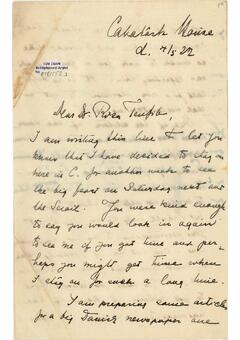 d. 4/5 22
Dear Dr. Rosen Temple,
I am writing this line to let you
know that I have decided to stay
here in C. for another week to see
the big feast on Saturday next and
the
You were kind enough
to say you would look in again
to see me if you got time and per-
haps you might get time when
I stay on for such a long time.
I am preparing some articles
for a big Danish newspaper and